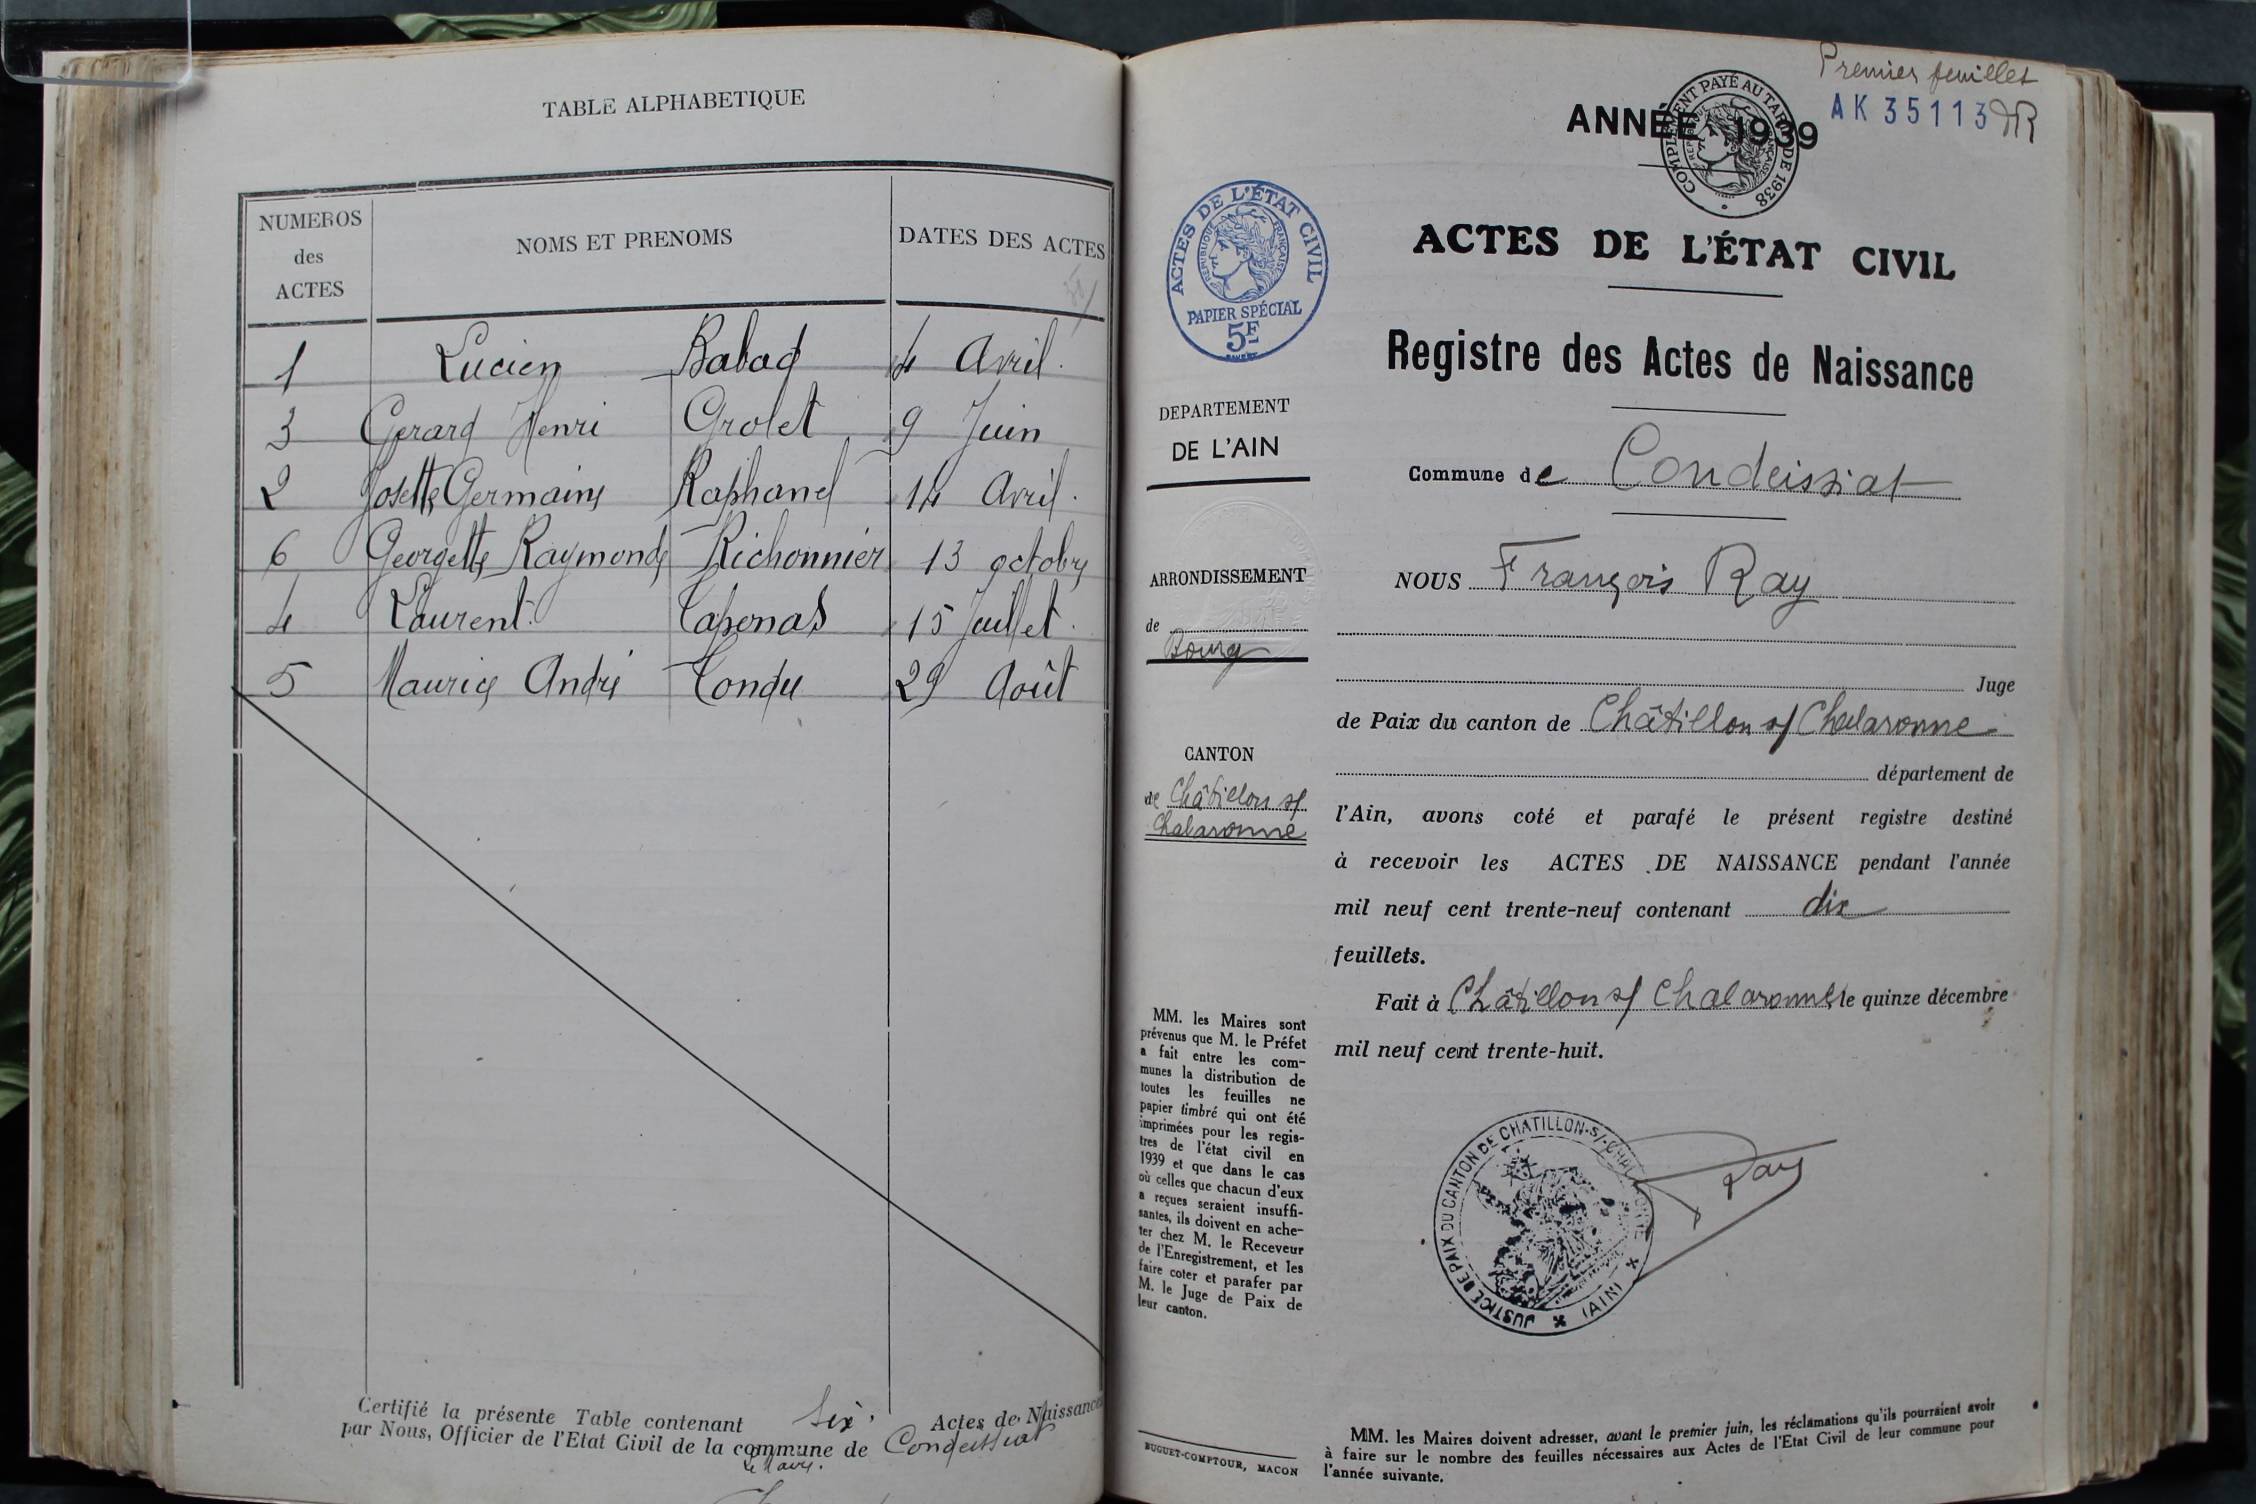 TABLE ALPHABETIQUE
NUMEROS
des
ACTES
NOMS ET PRENOMS
DATES DES ACTES
1 Lucien Babad 4 Avril.
3 Gérard Henri Grolet 9 Juin
2 Josette Germaine Raphanel 14 Avril.
6 Georgette Raymonde Richonnier 13 octobre
4 Laurent Taponas 15 Juillet.
5 Maurice André Tondu 29 Août
Certifié la présente Table contenant Six. Actes de Naissances
par Nous, Officier de l'Etat Civil de la commune de Condeissiat
Le Maire.
Premier feuillet
AK 35113
ANNÉE 1939
COMPLEMENT PAYÉ AU TARIF DE 1938
RÉPUBLIQUE FRANÇAISE
ACTES DE L'ÉTAT CIVIL
RÉPUBLIQUE FRANÇAISE
PAPIER SPÉCIAL
5F
ACTES DE L'ÉTAT CIVIL
Registre des Actes de Naissance
DEPARTEMENT
DE L'AIN
ARRONDISSEMENT
de
Bourg
CANTON
de Châtillon s/
Chalaronne
Commune de Condeissiat
NOUS François Ray
Juge
de Paix du canton de Châtillon s/ Chalaronne
département de
l'Ain, avons coté et parafé le présent registre destiné
à recevoir les ACTES DE NAISSANCE pendant l'année
mil neuf cent trente-neuf contenant dix
feuillets.
Fait à Châtillon s/ Chalaronne, le quinze décembre
mil neuf cent trente-huit.
MM. les Maires sont
prévenus que M. le Préfet
a fait entre les com-
munes la distribution de
toutes les feuilles ne
papier timbré qui ont été
imprimées pour les regis-
tres de l'état civil en
1939 et que dans le cas
où celles que chacun d'eux
a reçues seraient insuffi-
santes, ils doivent en ache-
ter chez M. le Receveur
de l'Enregistrement, et les
faire coter et parafer par
M. le Juge de Paix de
leur canton.
JUSTICE DE PAIX DU CANTON DE CHATILLON-S/-CHALARONNE (AIN)
Ray
BUGUET-COMPTOUR, MACON
MM. les Maires doivent adresser, avant le premier juin, les réclamations qu'ils pourraient avoir
à faire sur le nombre des feuilles nécessaires aux Actes de l'Etat Civil de leur commune pour
l'année suivante.